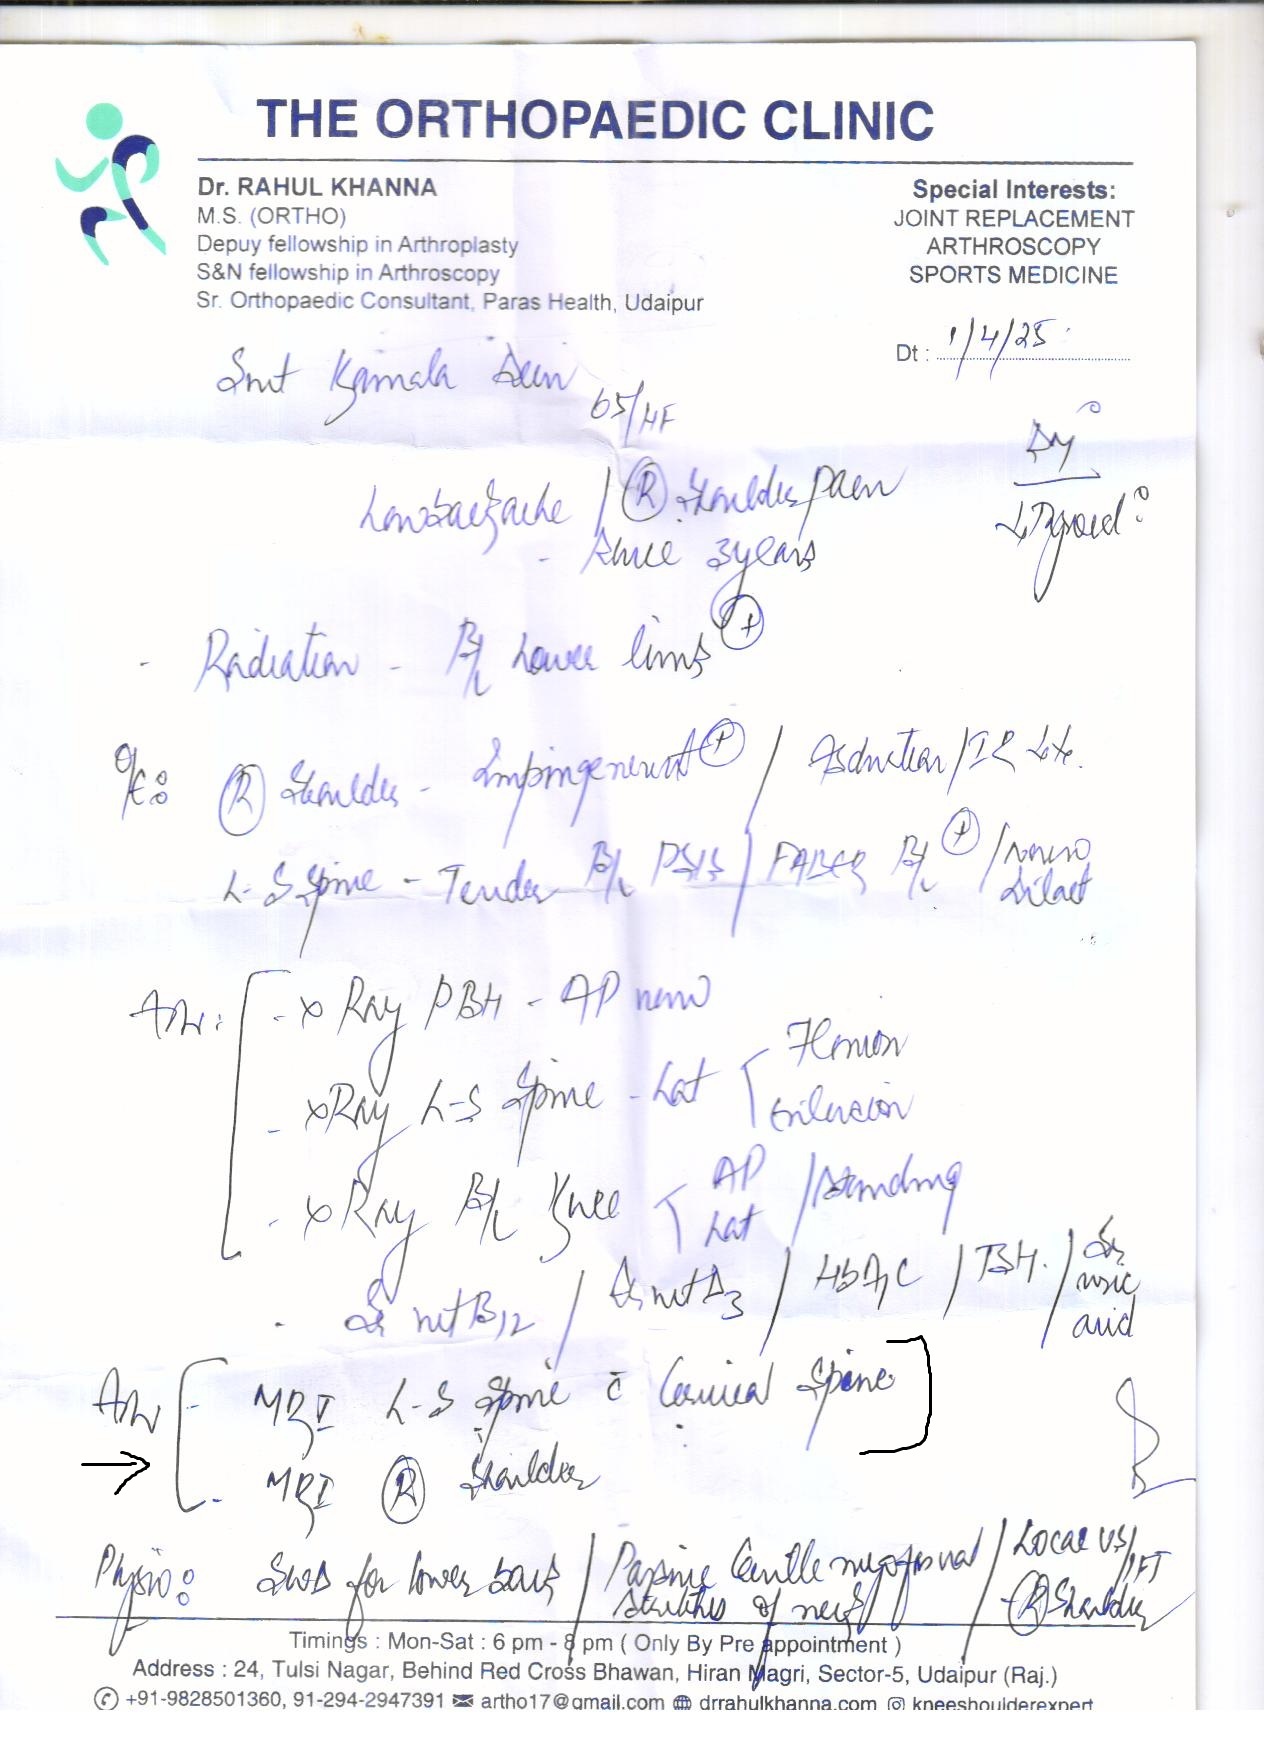 THE ORTHOPAEDIC CLINIC
Dr. RAHUL KHANNA
M.S. (ORTHO)
Depuy fellowship in Arthroplasty
S&N fellowship in Arthroscopy
Sr. Orthopaedic Consultant, Paras Health, Udaipur
Special Interests:
JOINT REPLACEMENT
ARTHROSCOPY
SPORTS MEDICINE
Dt : 1/4/25
Smt Kamala
65/
Lowbackache / (R) Shoulder Pain
- Since 3years
Thyroid
- Radiation - B/L Lower limb (+)
O/E: (R) Shoulder - Impingement (+) / Abduction / IR
L-S Spine - Tender B/L PSIS / FABER B/L (+) / Neuro Intact
Adv: - X Ray PBH - AP view
- X Ray L-S Spine - Lat Flexion
Extension
- X Ray B/L Knee AP / Standing
Lat
- Sr Vit B12 / Sr Vit D3 / HbA1C / TSH / Sr uric acid
Adv - MRI L-S Spine c̄ Cervical Spine
→
- MRI (R) Shoulder
Physio: SWD for lower back / Passive Gentle myofascial / Local US/IFT
stretches of neck (R) Shoulder
Timings : Mon-Sat : 6 pm - 8 pm ( Only By Pre appointment )
Address : 24, Tulsi Nagar, Behind Red Cross Bhawan, Hiran Magri, Sector-5, Udaipur (Raj.)
+91-9828501360, 91-294-2947391 artho17@gmail.com drrahulkhanna.com kneeshoulderexpert